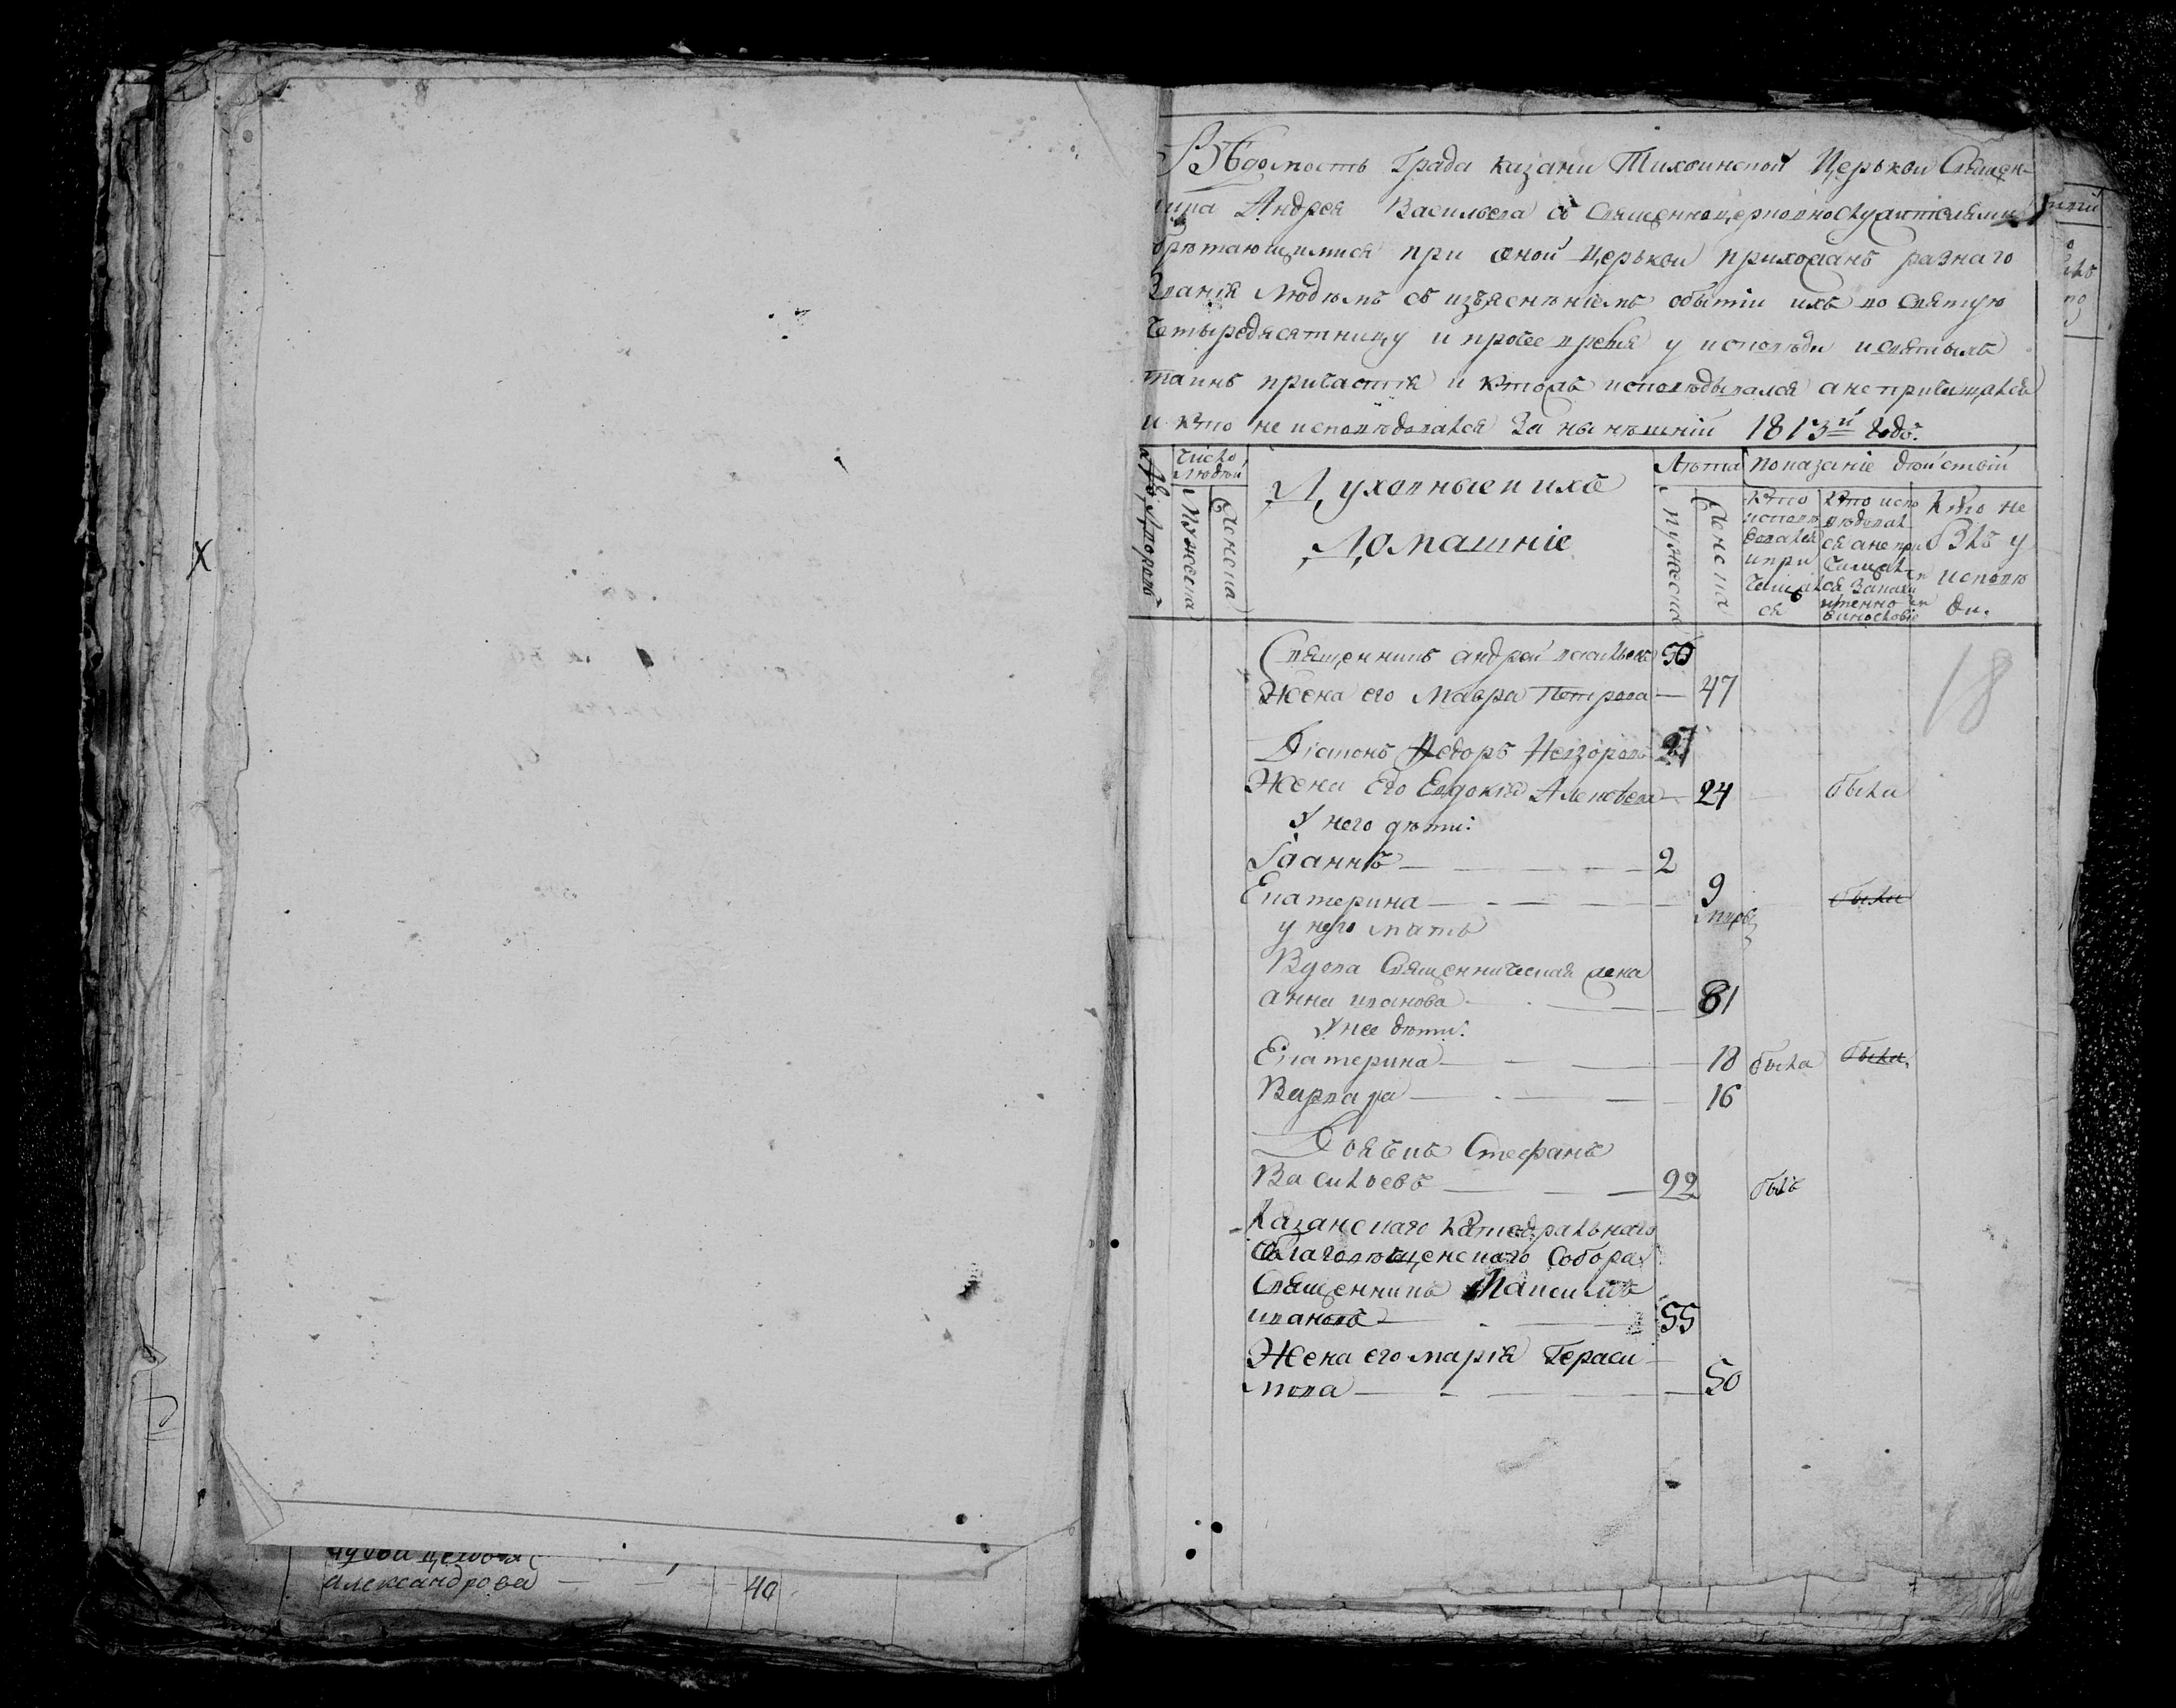 Вѣдомость Града казани Тихвинской Церькви Священ-
ника Андрея Васильева со священноцерковнослужительми
обрѣтающимися при оной церькви приходанъ разнаго
Званія людѣмъ съ изъяснѣніемъ обытіи ихъ во святую
Четыредесятницу и протчее время у исповѣди и святыхъ
таинъ причастія и ктожъ исповѣдывался а не причащался
и кто не исповѣдовался За нынѣшній 1813й Годъ.
Число
Людей
Дворовъ
Мужеска
Женска
Духовные и ихъ
Домашніе
Лѣта
показаніе дѣйствій
мужеска
Женска
Кто
исповѣ
довался
и при
чащал
ся
Кто испо
вѣдовал
ся а не при
Кто не
былъ у
исповѣ
ди.
Священникъ андрей васильевъ 50
Жена его Мавра Петрова — 47
18
Діаконъ Ѳедоръ Невзоровъ 27
Жена его Евдокія Алексѣева — 24 была
У него дѣти:
Іоаннъ — 2
Екатерина — 9 была
у него мать
Вдова Священническая жена
анна иванова — 81
У нее дѣти:
Екатерина — 18 была была
Варвара — 16
Дьячекъ Стефанъ
Васильевъ — 22 былъ
Казанскаго Катедральнаго
благовѣщенскаго собора
Священникъ Максимъ
ивановъ — 55
Жена его марія Гераси
мова — 50
александрова — 40